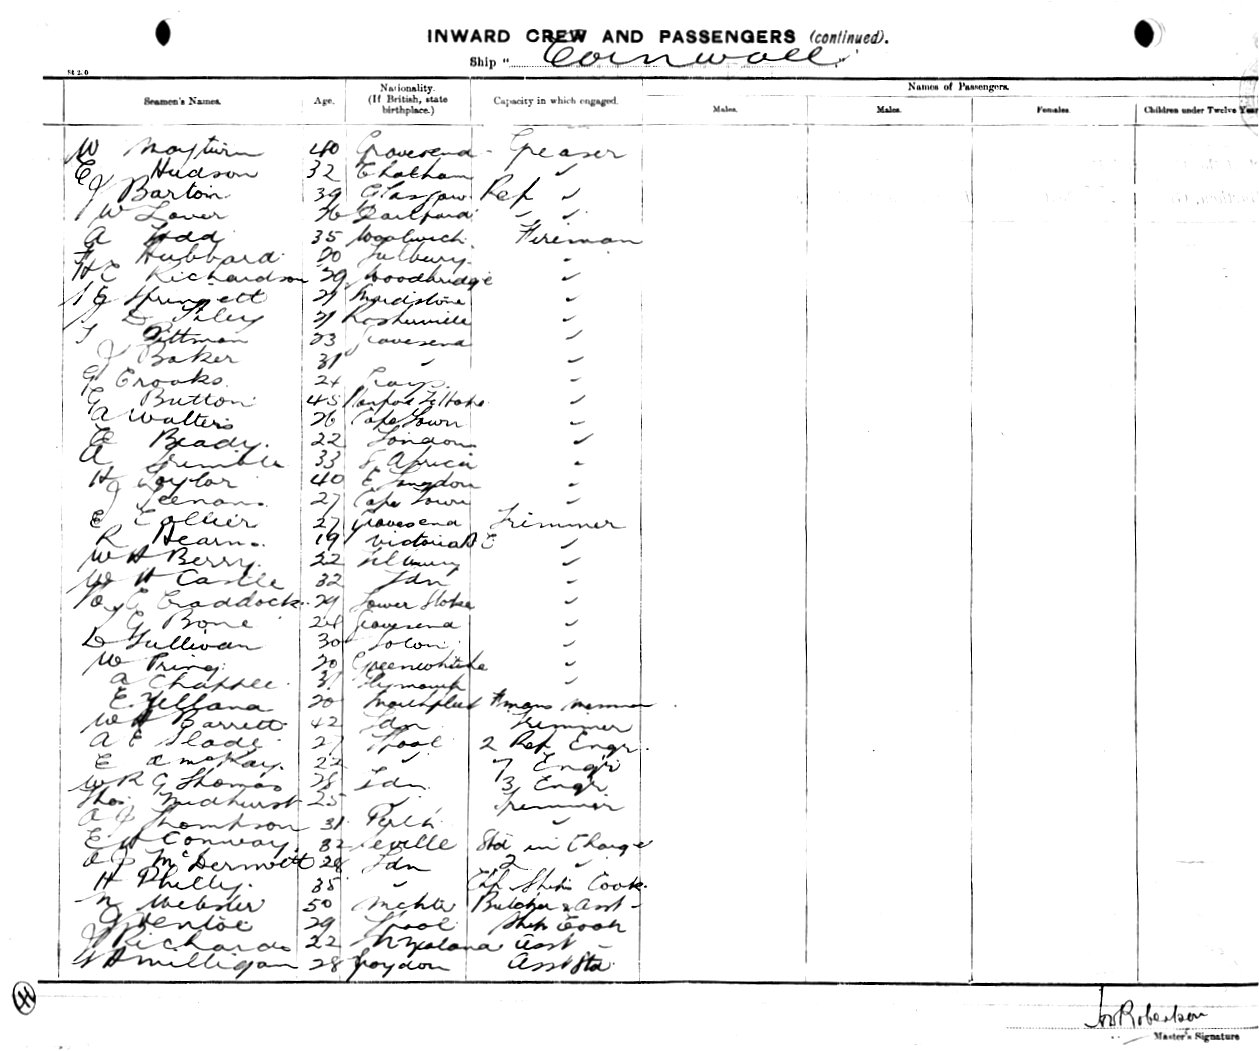 INWARD CREW AND PASSENGERS (continued).
Ship "Cornwall"
Seamen's Names. Age. Nationality. (If British, state birthplace.) Capacity in which engaged. Names of Passengers.
Males. Males. Females. Children under Twelve Year
W Maytum 40 Gravesend - Greaser
E Hudson 32 Chatham ✓
J Barton 39 Glasgow Ref ✓
W Lover 26
A Todd 35 Woolwich Fireman
Hubbard 20
H E Richardson 29 Woodbridge ✓
Springett 21 Maidstone ✓
21 Rosherville ✓
Pittman 23 Gravesend ✓
J Baker 31 " ✓
G Crooks 24 Grays ✓
G Button 45 ✓
A Walters 26 Cape Town ✓
E Beady 22 London ✓
A Trimble 33 S Africa
H Taylor 40 E London ✓
J Teenan 27 Cape Town ✓
E Collier 27 Gravesend Trimmer
R Hearn 19 Victoria ✓
W H Berry 22 Tilbury ✓
W H Castle 32 Ldn ✓
G Craddock 29 Lower Stoke ✓
G Bone 24 Gravesend ✓
D Sullivan 30 ✓
W Pring 20 ✓
A Chapple 31 Plymouth ✓
E Yelland 20 Northfleet
W H Barrett 42 Ldn Trimmer
A E Slade 27 Lpool 2 Ref Engr.
E A McKay 22 " 7 Engr
W R G Thomas 28 Ldn 3 Engr
Thos Midhurst 25 " Trimmer
A J Thompson 31 Perth "
E H Conway 32 Seville Std in Charge
McDermott 28 Ldn 2 "
H Philly 35 " Ship's Cook.
N Webster 50 Mchtr Butcher & Asst
G Bentoe 29 Lpool Ship Cook
J Richards 22 N Zealand Asst
H Milligan 28 Croydon Asst Std
Robertson
Master's Signature